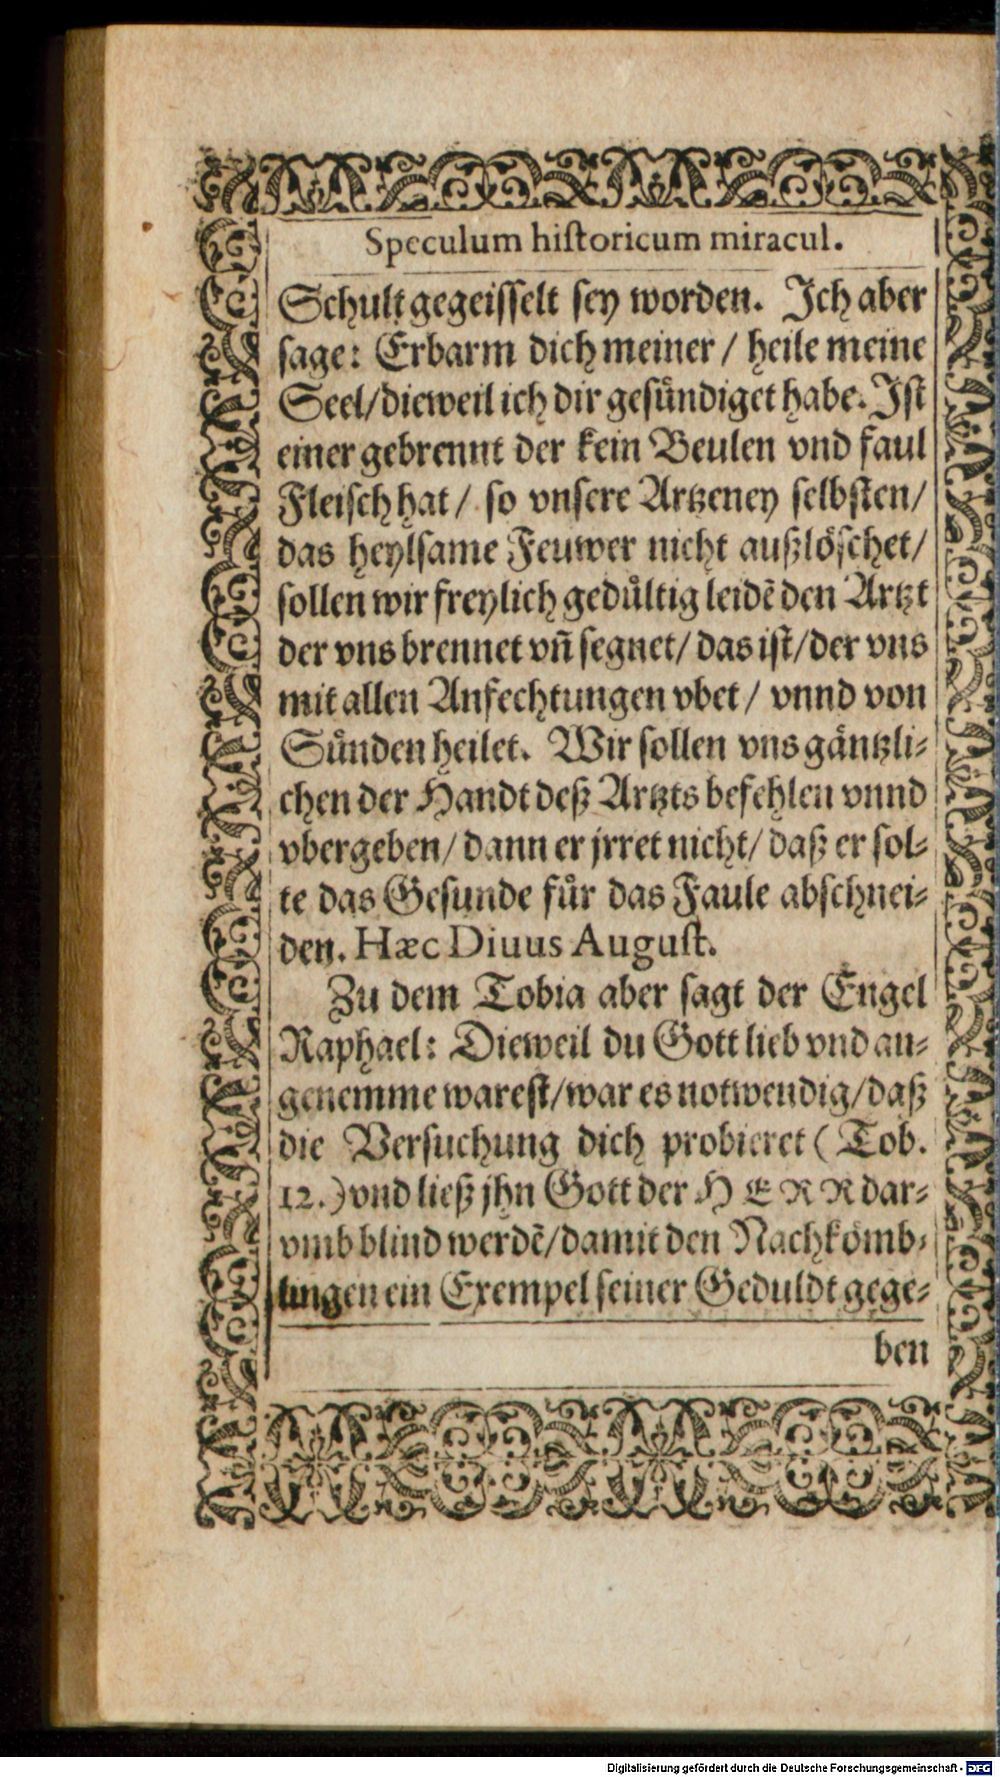 Speculum historicum miracul.
Schult gegeisselt sey worden. Ich aber
sage: Erbarm dich meiner / heile meine
Seel/dieweil ich dir gesündiget habe. Ist
einer gebrennt der kein Beulen vnd faul
Fleisch hat / so vnsere Artzeney selbsten/
das heylsame Feuwer nicht außlöschet/
sollen wir freylich gedültig leidē den Artzt
der vns brennet vñ segnet/ das ist/der vns
mit allen Anfechtungen vbet / vnnd von
Sünden heilet. Wir sollen vns gäntzli-
chen der Handt deß Artzts befehlen vnnd
vbergeben/ dann er jrret nicht/ daß er sol-
te das Gesunde für das Faule abschnei-
den. Hæc Diuus August.
Zu dem Tobia aber sagt der Engel
Raphael: Dieweil du Gott lieb vnd an-
genemme warest/war es notwendig/daß
die Versuchung dich probieret ( Tob.
12.) vnd ließ jhn Gott der HERR dar-
vmb blind werdē/damit den Nachkömb-
lingen ein Exempel seiner Geduldt gege-
ben
Digitalisierung gefördert durch die Deutsche Forschungsgemeinschaft - DFG